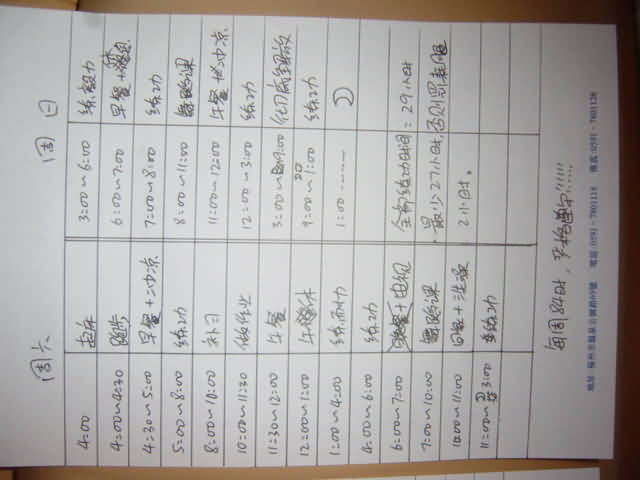 周六
周日
4:00 起床 3:00~6:00 练毅力
4:00~4:30 跑步 6:00~7:00 早餐+休息
4:30~5:00 早餐+冲凉 7:00~8:00 练功
5:00~8:00 练功 8:00~11:00 舞蹈课
8:00~10:00 补习 11:00~12:00 午餐+冲凉
10:00~11:30 做作业 12:00~3:00 练功
11:30~12:00 午餐 3:00~9:00
12:00~1:00 午休 9:00~1:00 练功
1:00~4:00 练耐力 1:00 ……
4:00~6:00 练功
6:00~7:00 晚餐+电视 全部练功时间=29小时
7:00~10:00 舞蹈课 最少27小时,否则罚
10:00~11:00 宵夜+洗澡 2小时。
11:00~3:00 练功
每周84时,严格遵守!!!!!!